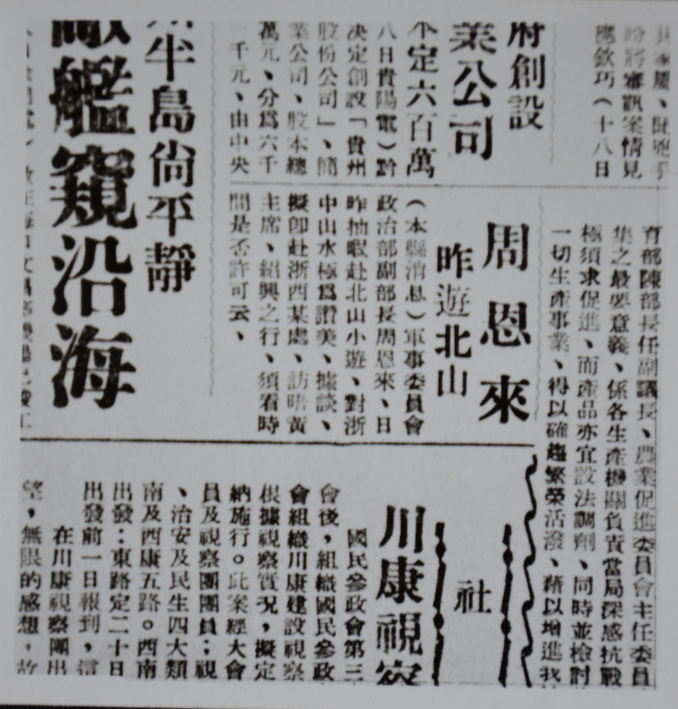 盼將審訊案情見
應欽巧(十八日
府創設
業公司
本定六百萬
八日貴陽電)黔
決定創設「貴州
股份公司」、簡
業公司、股本總
萬元、分爲六千
一千元、由中央
半島尙平靜
敵艦窺沿海
育部陳部長任副議長、農業促進委員會主任委員
集之最要意義、係各生產機關負責當局深感抗戰
極須求促進、而產品亦宜設法調劑、同時並檢討
一切生產事業、得以確趨繁榮活潑、藉以增進我
周恩來
昨遊北山
(本縣消息)軍事委員會
政治部副部長周恩來、日
昨抽暇赴北山小遊、對浙
中山水極爲讚美、據談、
擬卽赴浙西某處、訪晤黃
主席、紹興之行、須看時
間是否許可云、
社
川康視察
國民參政會第三
會後，組織國民參政
會組織川康建設視察
根據視察實況，擬定
納施行。此案經大會
員及視察團團員；視
、治安及民生四大類
南及西康五路。西南
出發：東路定二十日
出發前一日報到，這
在川康視察團出
望，無限的感想，故